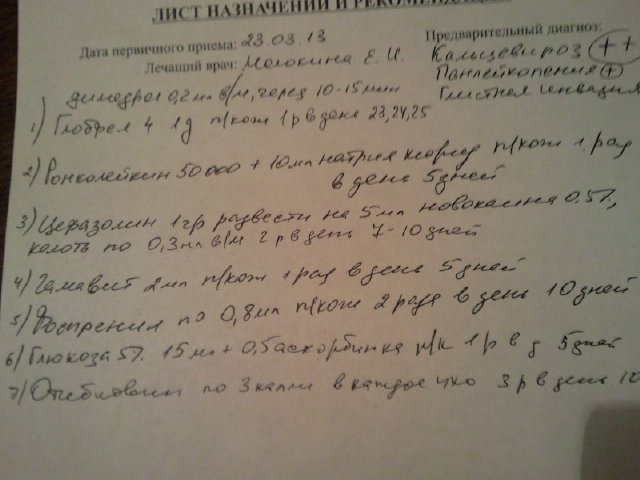 ЛИСТ НАЗНАЧЕНИЙ И РЕКОМЕНДАЦИЙ
Дата первичного приема: 23.03.13
Лечащий врач: Е. И.
Предварительный диагноз:
Кальцевироз ++
Панлейкопения (+)
Глистная инвазия
димедрол 0,2 мл в/м, через 10-15 мин
1) Глобфел 4 1д п/кож 1 р в день 23,24,25
2) Ронколейкин 50 000 + 10 мл натрия хлорид п/кож 1 раз
в день 5 дней
3) Цефазолин 1 гр развести на 5 мл новокаина 0.5%,
колоть по 0,3 мл в/м 2 р в день 7-10 дней
4) Гамавит 2 мл п/кож 1 раз в день 5 дней
5) Фоспренил по 0,8 мл п/кож 2 раза в день 10 дней
6) Глюкоза 5%. 15 мл + 0,5 аскорбинка п/к 1 р в д 5 дней
7) Отибиовин по 3 капли в каждое ухо 3 р в день 10